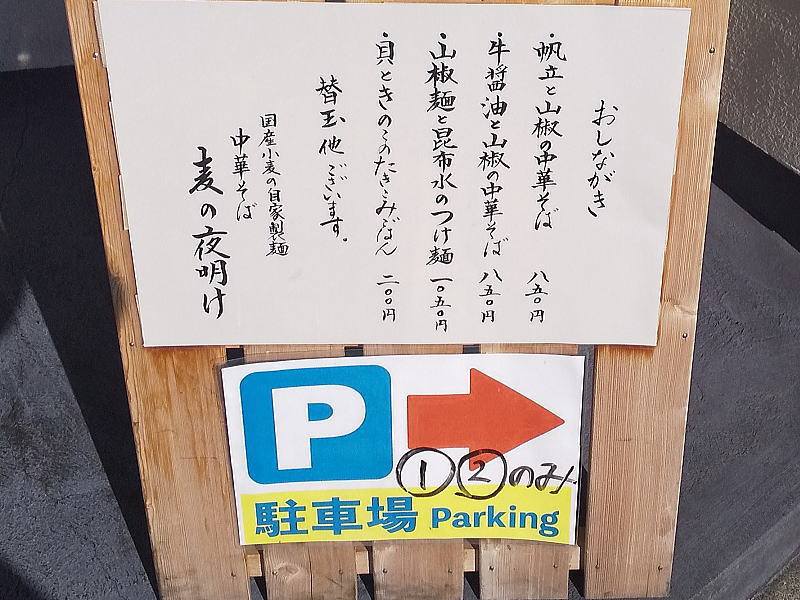 おしながき
・帆立と山椒の中華そば 八五〇円
・牛醤油と山椒の中華そば 八五〇円
・山椒麺と昆布水のつけ麺 一〇五〇円
・貝ときのこのたきこみごはん 二〇〇円
替玉他ございます。
国産小麦の自家製麺
中華そば
麦の夜明け
P
①②のみ
駐車場 Parking